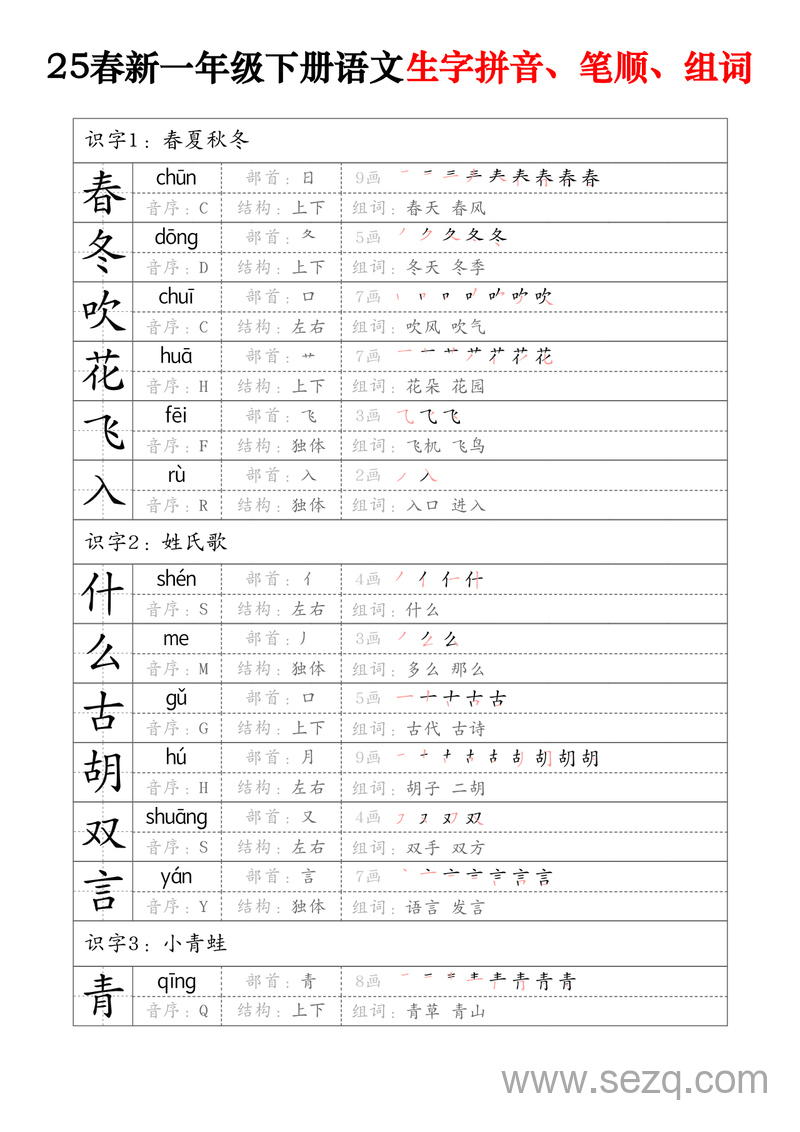 25春新一年级下册语文生字拼音、笔顺、组词
识字1：春夏秋冬
春 chūn 部首：日 9画
音序：C 结构：上下 组词：春天 春风
冬 dōng 部首：夂 5画
音序：D 结构：上下 组词：冬天 冬季
吹 chuī 部首：口 7画
音序：C 结构：左右 组词：吹风 吹气
花 huā 部首：艹 7画
音序：H 结构：上下 组词：花朵 花园
飞 fēi 部首：飞 3画
音序：F 结构：独体 组词：飞机 飞鸟
入 rù 部首：入 2画
音序：R 结构：独体 组词：入口 进入
识字2：姓氏歌
什 shén 部首：亻 4画
音序：S 结构：左右 组词：什么
么 me 部首：丿 3画
音序：M 结构：独体 组词：多么 那么
古 gǔ 部首：口 5画
音序：G 结构：上下 组词：古代 古诗
胡 hú 部首：月 9画
音序：H 结构：左右 组词：胡子 二胡
双 shuāng 部首：又 4画
音序：S 结构：左右 组词：双手 双方
言 yán 部首：言 7画
音序：Y 结构：独体 组词：语言 发言
识字3：小青蛙
青 qīng 部首：青 8画
音序：Q 结构：上下 组词：青草 青山
www.sezq.com